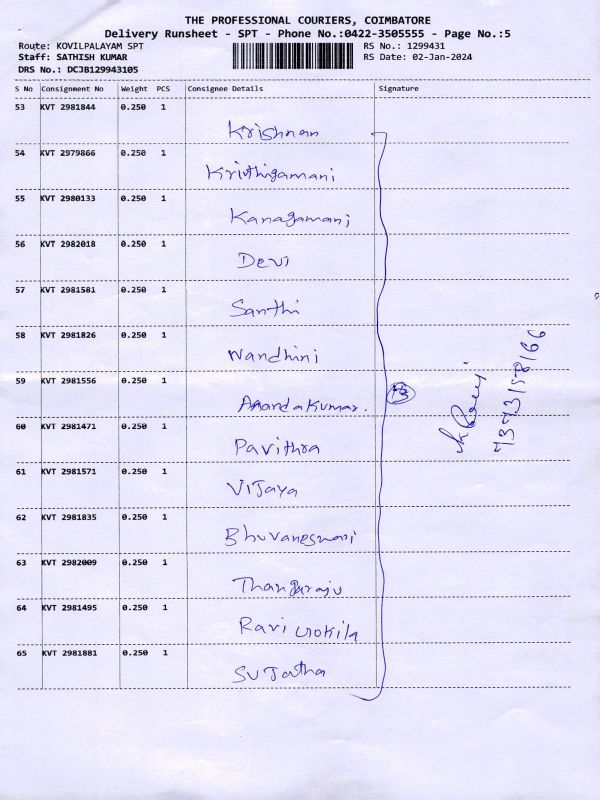 THE PROFESSIONAL COURIERS, COIMBATORE
Delivery Runsheet - SPT - Phone No.:0422-3505555 - Page No.:5
Route: KOVILPALAYAM SPT
RS No.: 1299431
Staff: SATHISH KUMAR
RS Date: 02-Jan-2024
DRS No.: DCJB129943105
S No Consignment No Weight PCS Consignee Details Signature
53 KVT 2981844 0.250 1
Krishnan
54 KVT 2979866 0.250 1
Krithigamani
55 KVT 2980133 0.250 1
Kanagamani
56 KVT 2982018 0.250 1
Devi
57 KVT 2981581 0.250 1
Santhi
58 KVT 2981826 0.250 1
Nandhini
59 KVT 2981556 0.250 1
Anandakumar.
60 KVT 2981471 0.250 1
Pavithra
61 KVT 2981571 0.250 1
Vijaya
62 KVT 2981835 0.250 1
Bhuvaneswari
63 KVT 2982009 0.250 1
Thangaraju
64 KVT 2981495 0.250 1
Ravi Gokila
65 KVT 2981881 0.250 1
Sujatha